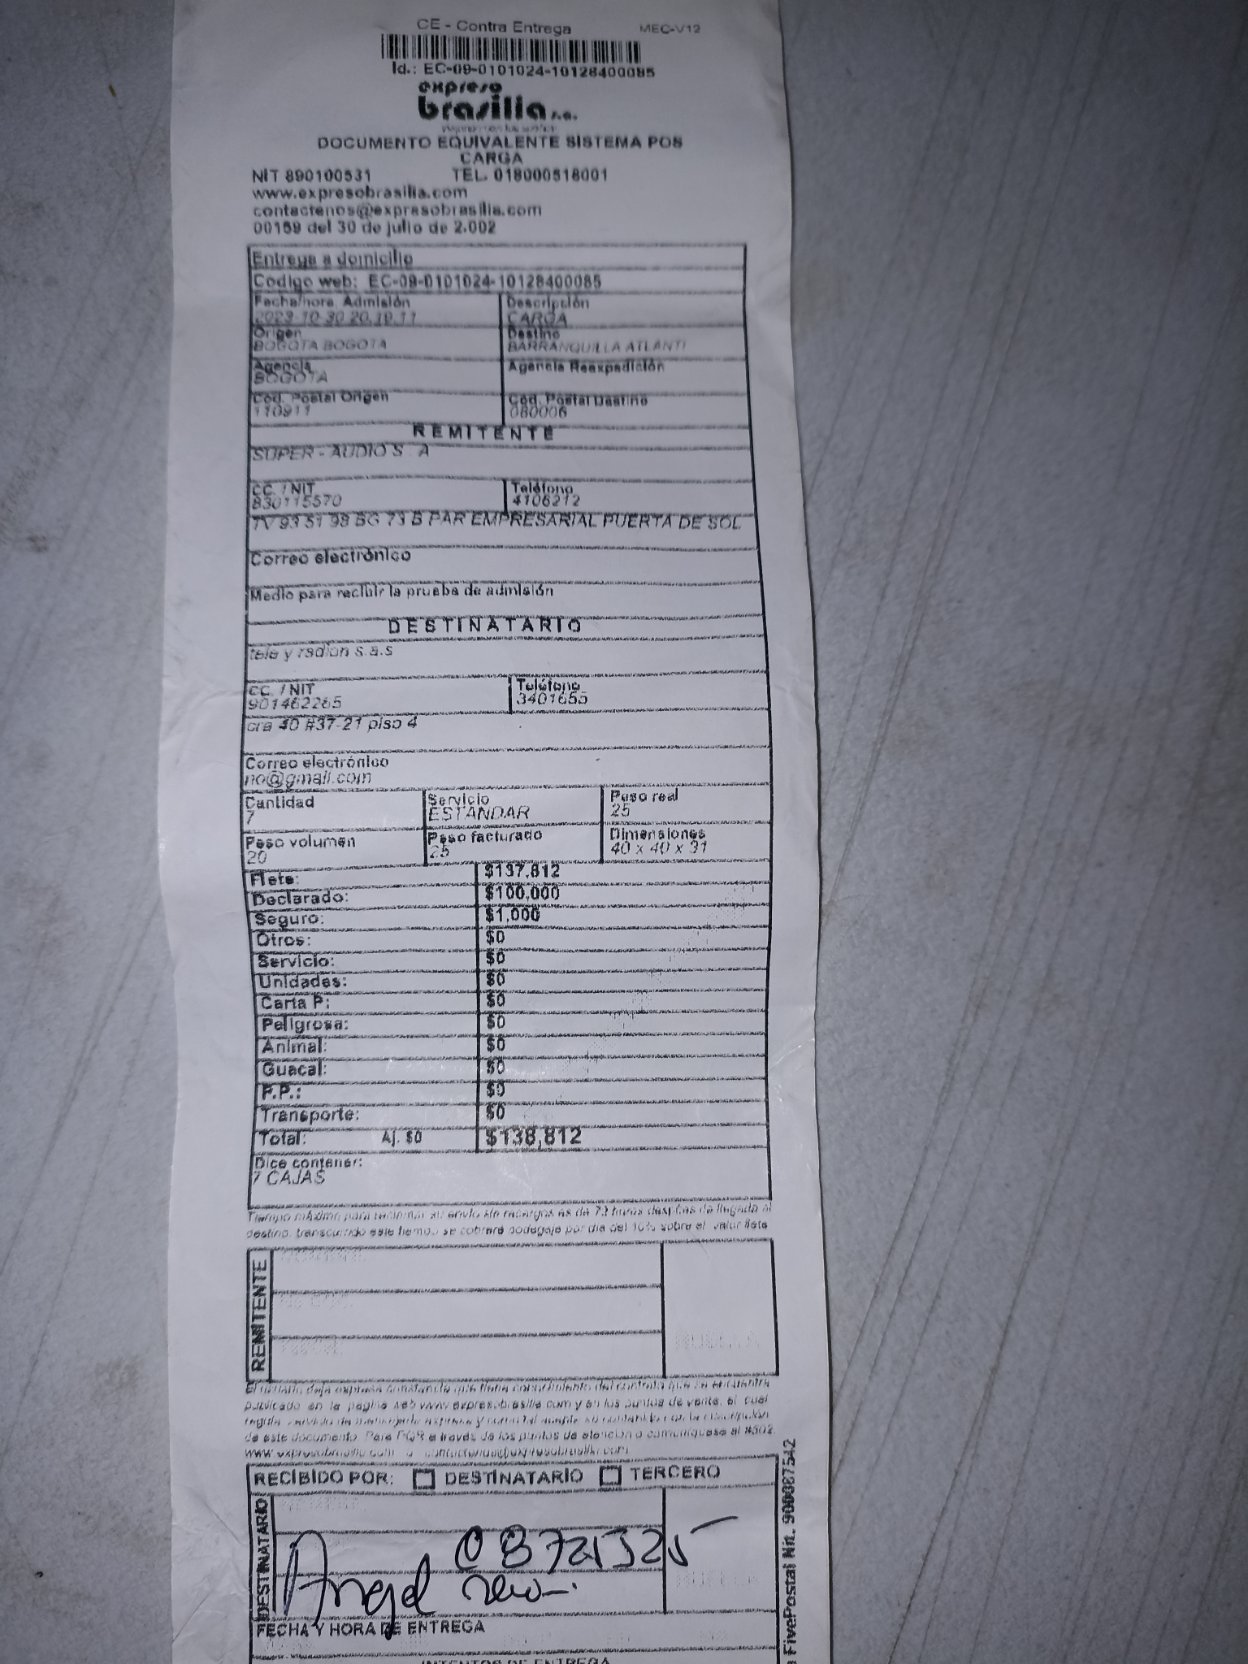 CE - Contra Entrega MEC-V12
Id.: EC-09-0101024-10128400085
expreso
brasilia s.a.
DOCUMENTO EQUIVALENTE SISTEMA POS
CARGA
NIT 890100531 TEL. 018000518001
www.expresobrasilia.com
contactenos@expresobrasilia.com
00159 del 30 de julio de 2.002
Entrega a domicilio
Codigo web: EC-09-0101024-10128400085
Fecha/hora Admisión Descripción
2023-10-30 20:19:11 CARGA
Origen Destino
BOGOTA BOGOTA BARRANQUILLA ATLANTI
Agencia Agencia Reexpedición
BOGOTA
Cod. Postal Origen Cod. Postal Destino
110911 080006
REMITENTE
SUPER - AUDIO S A
CC. / NIT Teléfono
830115570 4106212
TV 93 51 98 BG 73 B PAR EMPRESARIAL PUERTA DE SOL
Correo electrónico
Medio para recibir la prueba de admisión
DESTINATARIO
tele y radion s.a.s
CC. / NIT Teléfono
901462265 3401655
cra 40 #37-21 piso 4
Correo electrónico
no@gmail.com
Cantidad Servicio Peso real
7 ESTANDAR 25
Peso volumen Peso facturado Dimensiones
20 25 40 x 40 x 31
Flete: $137,812
Declarado: $100,000
Seguro: $1,000
Otros: $0
Servicio: $0
Unidades: $0
Carta P: $0
Peligrosa: $0
Animal: $0
Guacal: $0
P.P.: $0
Transporte: $0
Total: Aj. $0 $138,812
Dice contener:
7 CAJAS
Tiempo máximo para reclamar su envío sin recargos es de 72 horas después de llegada al
destino, transcurrido este tiempo se cobrará bodegaje por día del 10% sobre el valor flete
REMITENTE
El usuario deja expresa constancia que tiene conocimiento del contrato que se encuentra
publicado en la pagina web www.expresobrasilia.com y en los puntos de venta, el cual
regula servicio de mensajería expresa y
de este documento. Para PQR a través de los puntos de atención o comuníquese al #502
www.expresobrasilia.com o contactenos@expresobrasilia.com
RECIBIDO POR: DESTINATARIO TERCERO
DESTINATARIO
08721325
Angel
FECHA Y HORA DE ENTREGA
INTENTOS DE ENTREGA
FivePostal Nit. 900087542